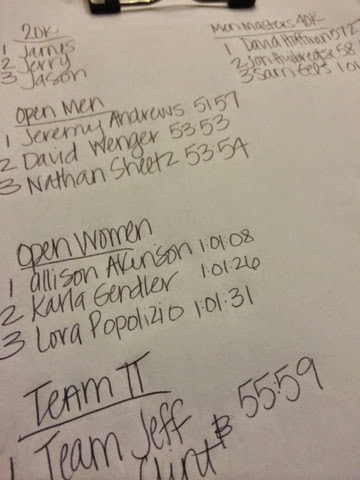 20K
1 James
2 Jerry
3 Jason
Men Masters 40K
1 David Hoffman 57:27
2 Jon 58
3 Sam 1:01
Open Men
1 Jeremy Andrews 51:57
2 David Wenger 53:53
3 Nathan Sheetz 53:54
Open Women
1 allison Atkinson 1:01:08
2 Karla Gendler 1:01:26
3 Lora Popolizio 1:01:31
Team TT
1 Team Jeff 55:59
Clint